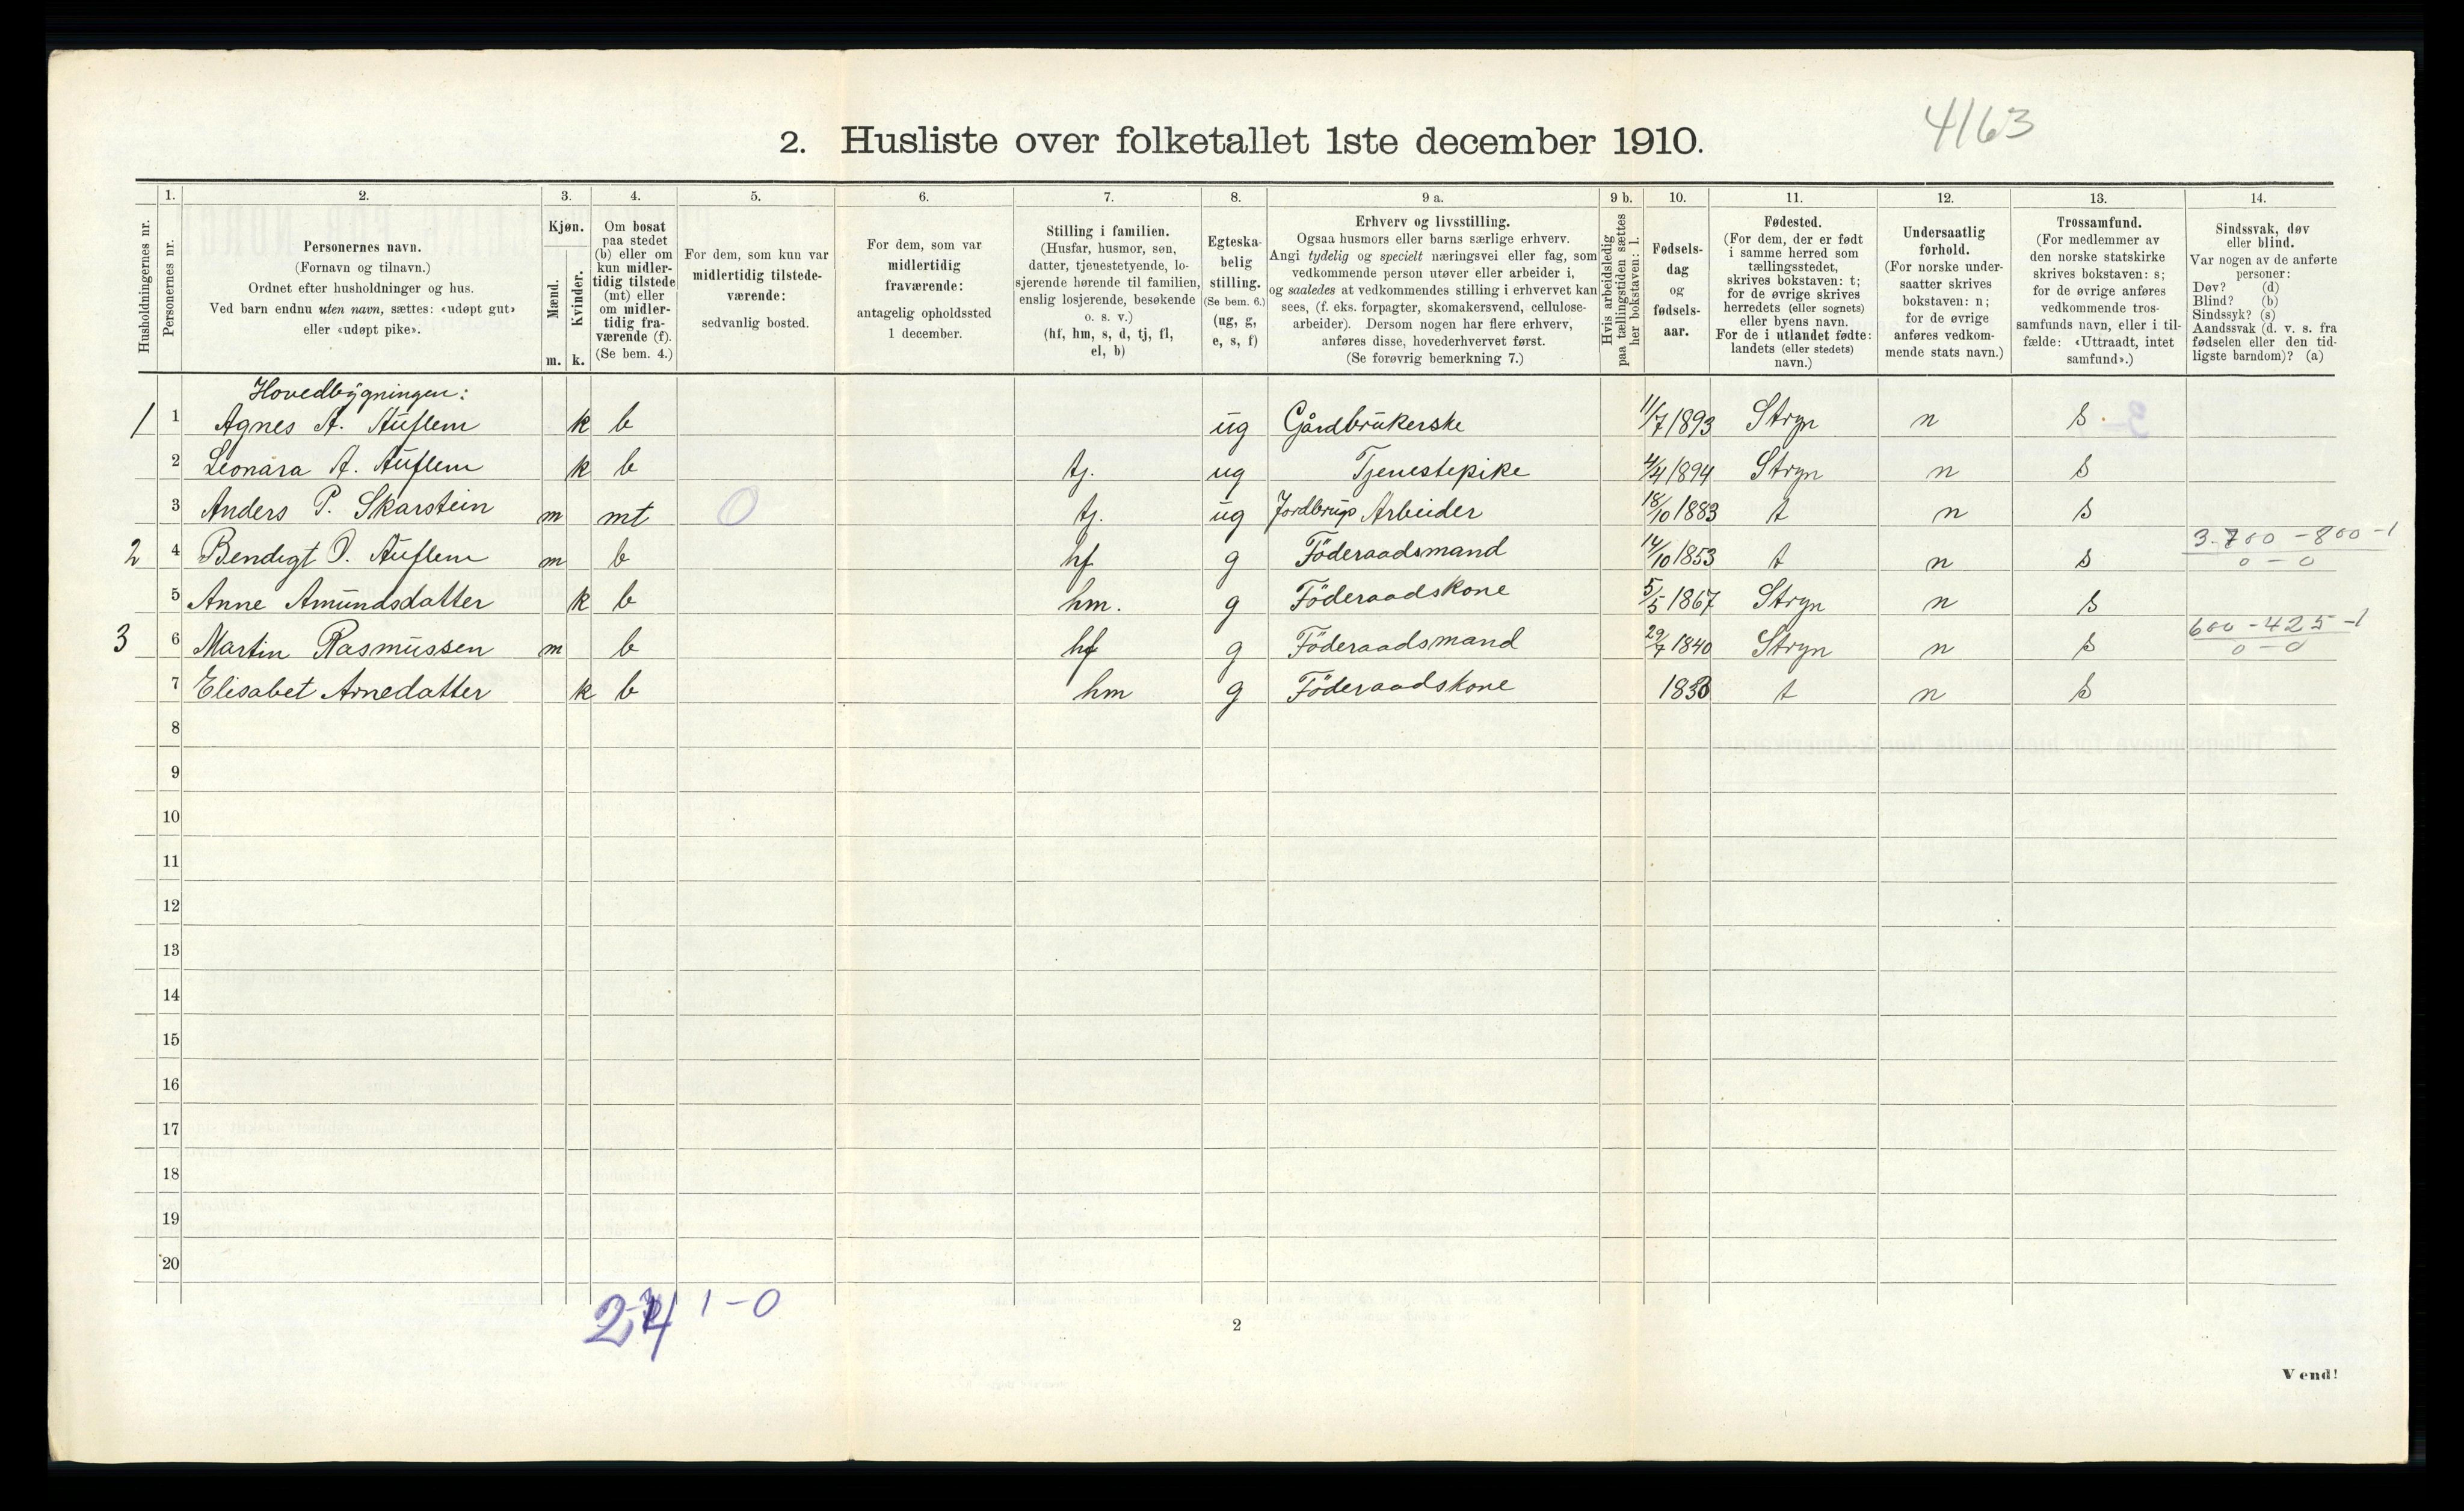 4163
2. Husliste over folketallet 1ste december 1910.
Husholdningernes nr.
1.
Personernes nr.
2.
Personernes navn.
(Fornavn og tilnavn.)
Ordnet efter husholdninger og hus.
Ved barn endnu uten navn, sættes: «udøpt gut»
eller «udøpt pike».
3.
Kjøn.
Mænd.
m.
Kvinder.
k.
4.
Om bosat
paa stedet
(b) eller om
kun midler-
tidig tilstede
(mt) eller
om midler-
tidig fra-
værende (f).
(Se bem. 4.)
5.
For dem, som kun var
midlertidig tilstede-
værende:
sedvanlig bosted.
6.
For dem, som var
midlertidig
fraværende:
antagelig opholdssted
1 december.
7.
Stilling i familien.
(Husfar, husmor, søn,
datter, tjenestetyende, lo-
sjerende hørende til familien,
enslig losjerende, besøkende
o. s. v.)
(hf, hm, s, d, tj, fl,
el, b)
8.
Egteska-
belig
stilling.
(Se bem. 6.)
(ug, g,
e, s, f)
9 a.
Erhverv og livsstilling.
Ogsaa husmors eller barns særlige erhverv.
Angi tydelig og specielt næringsvei eller fag, som
vedkommende person utøver eller arbeider i,
og saaledes at vedkommendes stilling i erhvervet kan
sees, (f. eks. forpagter, skomakersvend, cellulose-
arbeider). Dersom nogen har flere erhverv,
anføres disse, hovederhvervet først.
(Se forøvrig bemerkning 7.)
9 b.
Hvis arbeidsledig
paa tællingstiden sættes
her bokstaven: l.
10.
Fødsels-
dag
og
fødsels-
aar.
11.
Fødested.
(For dem, der er født
i samme herred som
tællingsstedet,
skrives bokstaven: t;
for de øvrige skrives
herredets (eller sognets)
eller byens navn.
For de i utlandet fødte:
landets (eller stedets)
navn.)
12.
Undersaatlig
forhold.
(For norske under-
saatter skrives
bokstaven: n;
for de øvrige
anføres vedkom-
mende stats navn.)
13.
Trossamfund.
(For medlemmer av
den norske statskirke
skrives bokstaven: s;
for de øvrige anføres
vedkommende tros-
samfunds navn, eller i til-
fælde: «Uttraadt, intet
samfund».)
14.
Sindssvak, døv
eller blind.
Var nogen av de anførte
personer:
Døv? (d)
Blind? (b)
Sindssyk? (s)
Aandssvak (d. v. s. fra
fødselen eller den tid-
ligste barndom)? (a)
Hovedbygningen:
1 1 Agnes A. Auflem k b ug Gårdbrukerske 11/7 1893 Stryn n s
2 Leonara A. Auflem k b tj. ug Tjenestepike 4/4 1894 Stryn n s
3 Anders P. Skarstein m mt 0 tj. ug Jordbrugs Arbeider 18/10 1883 t n s
2 4 Bendigt O. Auflem m b hf g Föderaadsmand 14/10 1853 t n s 3.700 - 800 - 1
0 - 0
5 Anne Amundsdatter k b hm. g Föderaadskone 5/5 1867 Stryn n s
3 6 Martin Rasmussen m b hf g Föderaadsmand 29/7 1840 Stryn n s 600 - 425 - 1
0 - 0
7 Elisabet Arnedatter k b hm g Föderaadskone t n s
8
9
10
11
12
13
14
15
16
17
18
19
20
1 - 0
2
Vend!